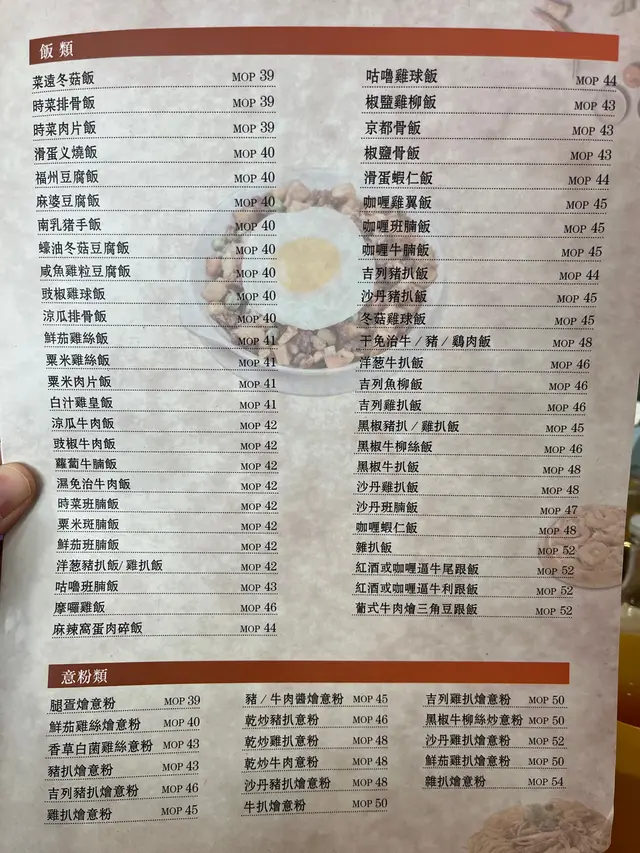 飯類
菜遠冬菇飯 MOP 39
時菜排骨飯 MOP 39
時菜肉片飯 MOP 39
滑蛋义燒飯 MOP 40
福州豆腐飯 MOP 40
麻婆豆腐飯 MOP 40
南乳猪手飯 MOP 40
蠔油冬菇豆腐飯 MOP 40
咸魚雞粒豆腐飯 MOP 40
豉椒雞球飯 MOP 40
涼瓜排骨飯 MOP 40
鮮茄雞絲飯 MOP 41
粟米雞絲飯 MOP 41
粟米肉片飯 MOP 41
白汁雞皇飯 MOP 41
涼瓜牛肉飯 MOP 42
豉椒牛肉飯 MOP 42
蘿蔔牛腩飯 MOP 42
濕免治牛肉飯 MOP 42
時菜班腩飯 MOP 42
粟米斑腩飯 MOP 42
鮮茄班腩飯 MOP 42
洋葱豬扒飯/雞扒飯 MOP 42
咕嚕班腩飯 MOP 43
摩囉雞飯 MOP 46
麻辣窩蛋肉碎飯 MOP 44
咕嚕雞球飯 MOP 44
椒鹽雞柳飯 MOP 43
京都骨飯 MOP 43
椒鹽骨飯 MOP 43
滑蛋蝦仁飯 MOP 44
咖喱雞翼飯 MOP 45
咖喱班腩飯 MOP 45
咖喱牛腩飯 MOP 45
吉列豬扒飯 MOP 44
沙丹豬扒飯 MOP 45
冬菇雞球飯 MOP 45
干免治牛/豬/鷄肉飯 MOP 48
洋葱牛扒飯 MOP 46
吉列魚柳飯 MOP 46
吉列雞扒飯 MOP 46
黑椒豬扒/雞扒飯 MOP 45
黑椒牛柳絲飯 MOP 46
黑椒牛扒飯 MOP 48
沙丹雞扒飯 MOP 48
沙丹班腩飯 MOP 47
咖喱蝦仁飯 MOP 48
雜扒飯 MOP 52
紅酒或咖喱逼牛尾跟飯 MOP 52
紅酒或咖喱逼牛利跟飯 MOP 52
葡式牛肉燴三角豆跟飯 MOP 52
意粉類
腿蛋燴意粉 MOP 39
鮮茄雞絲燴意粉 MOP 40
香草白菌雞絲意粉 MOP 43
豬扒燴意粉 MOP 43
吉列豬扒燴意粉 MOP 46
雞扒燴意粉 MOP 45
豬/牛肉醬燴意粉 MOP 45
乾炒豬扒意粉 MOP 46
乾炒雞扒意粉 MOP 48
乾炒牛肉意粉 MOP 48
沙丹豬扒燴意粉 MOP 48
牛扒燴意粉 MOP 50
吉列雞扒燴意粉 MOP 50
黑椒牛柳絲炒意粉 MOP 50
沙丹雞扒燴意粉 MOP 52
鮮茄雞扒燴意粉 MOP 50
雜扒燴意粉 MOP 54